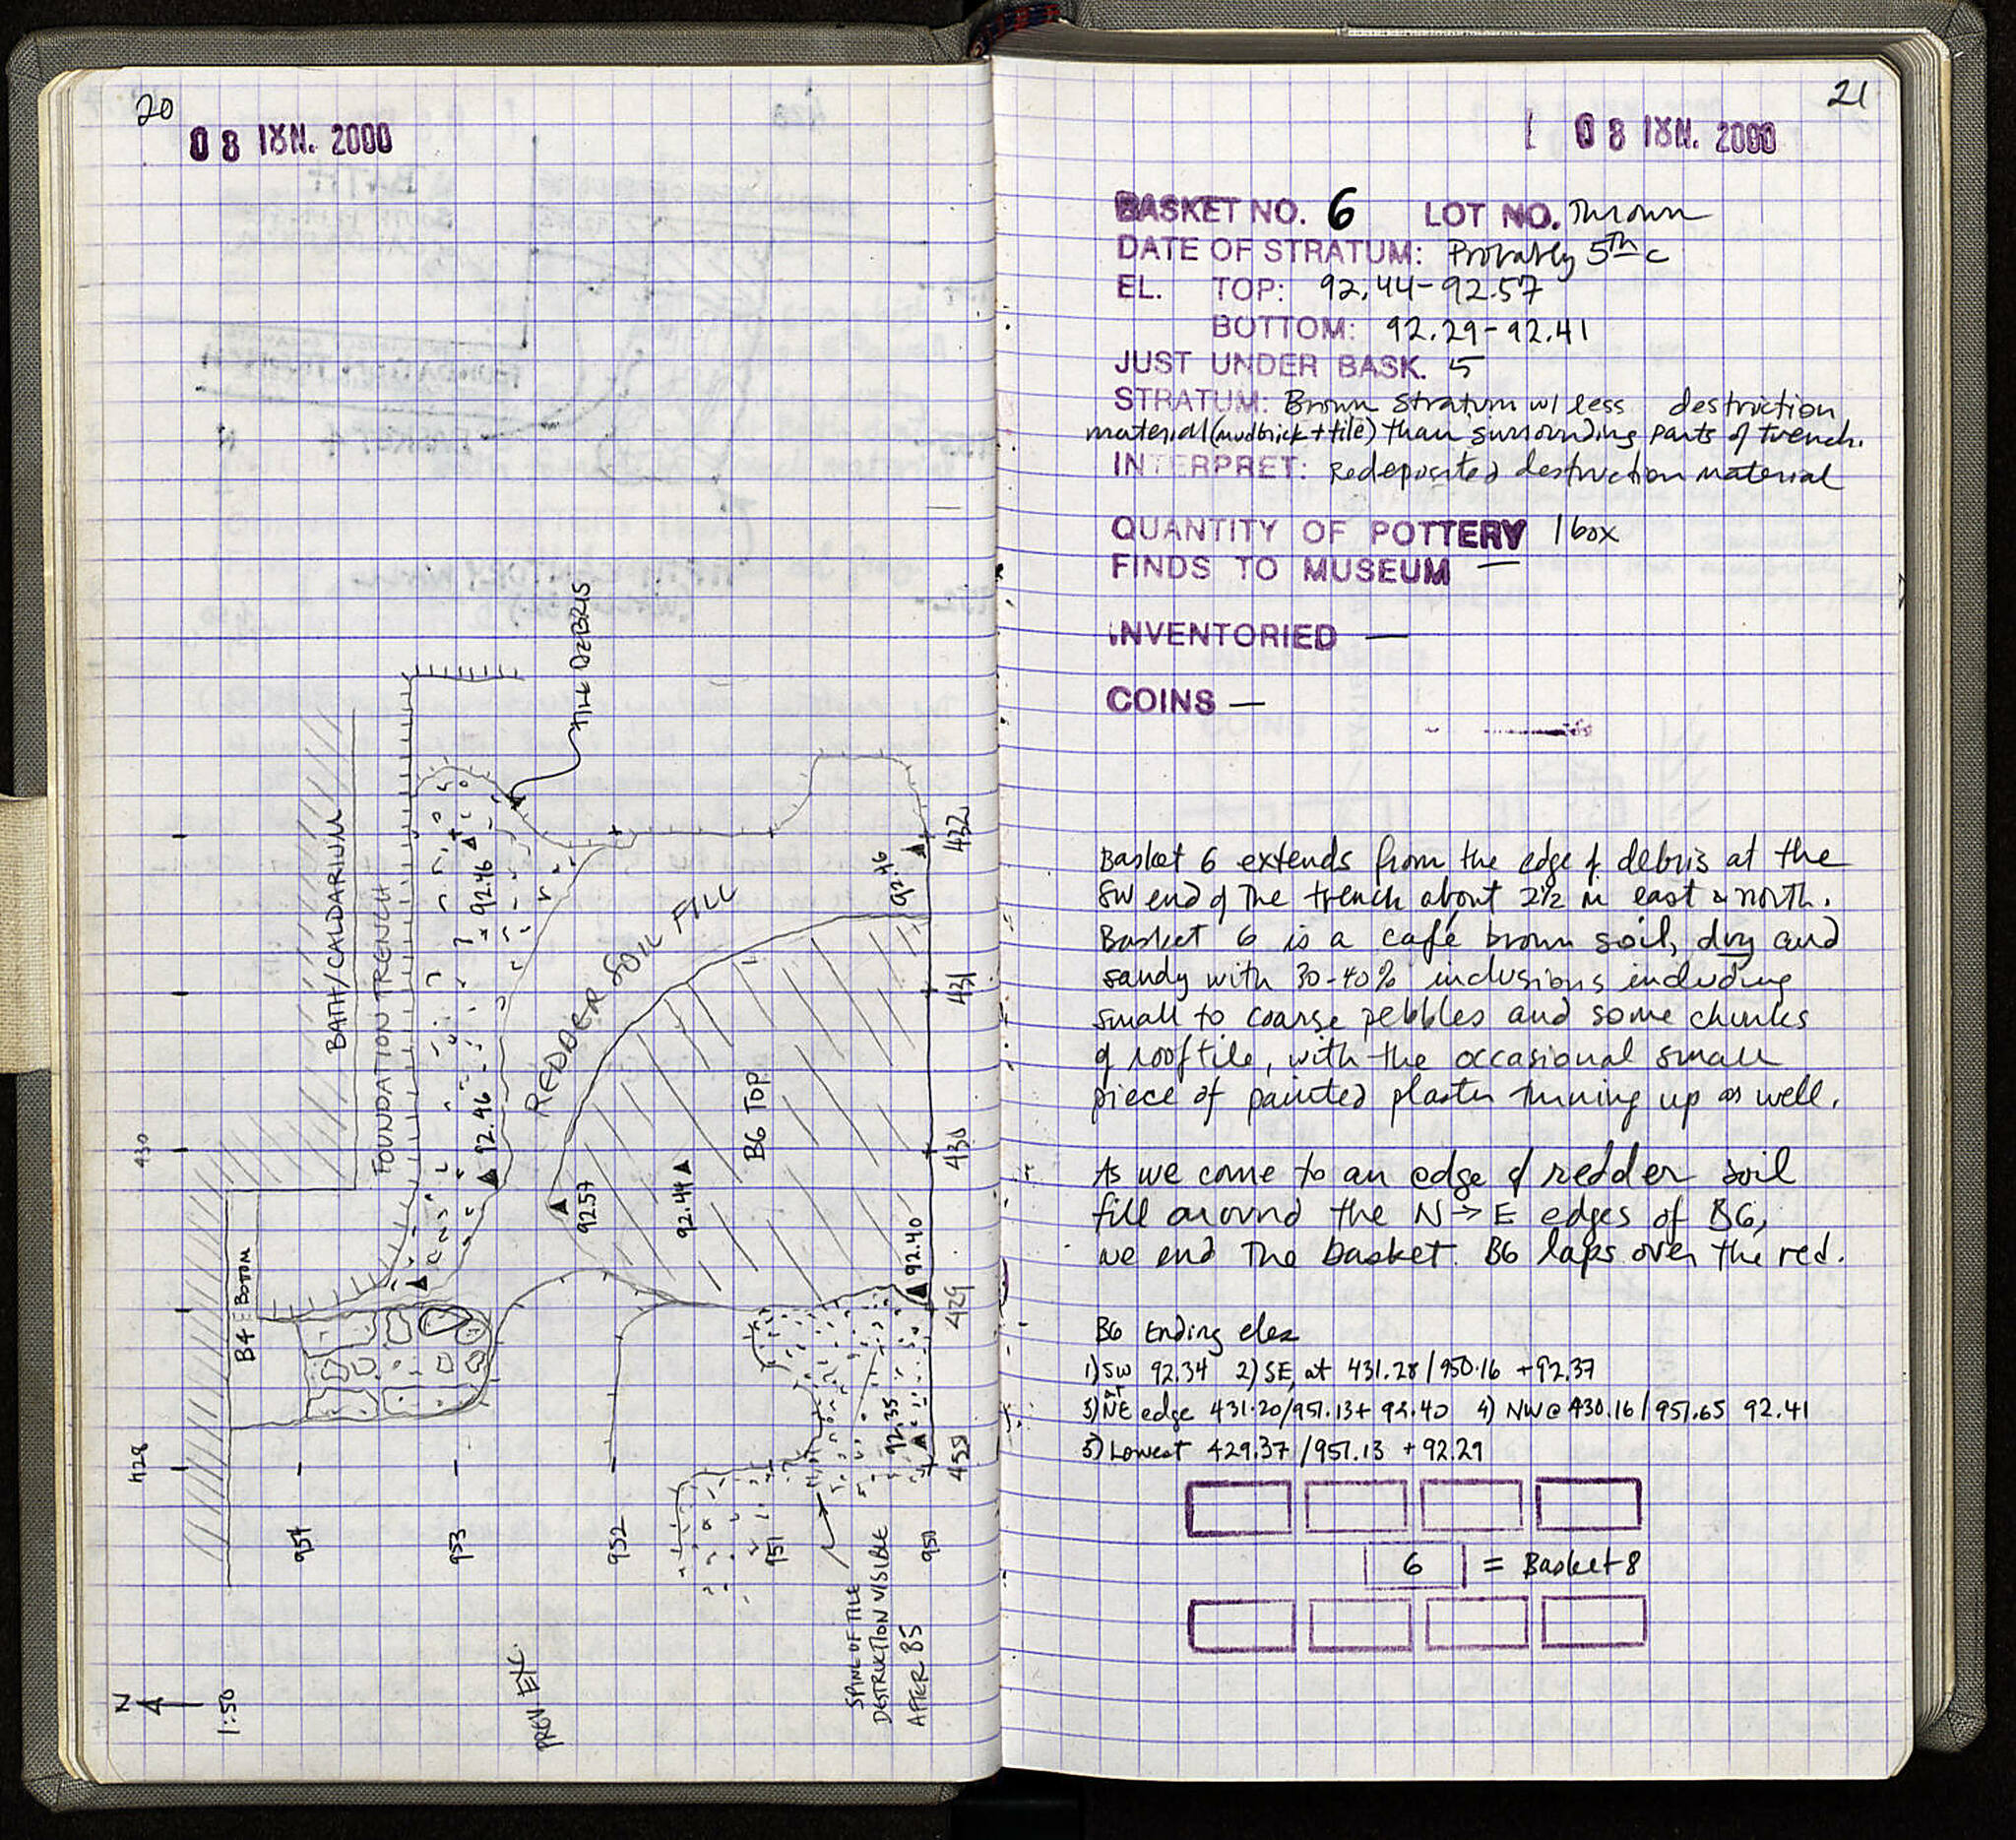 20
08 ΙΟΥΝ. 2000
TILE DEBRIS
BATH/CALDARIUM
FOUNDATION TRENCH
92.46
92.46
REDDER SOIL FILL
92.46
432
431
430
429
B6 TOP
92.57
92.44
92.40
430
428
B4 BOTTOM
954
953
952
951
950
92.35
455
N
1:50
PREV EXC.
SPINE OF TILE
DESTRUCTION VISIBLE
AFTER B5
21
08 ΙΟΥΝ. 2000
BASKET NO. 6 LOT NO. Thrown
DATE OF STRATUM: Probably 5th c
EL. TOP: 92.44-92.57
BOTTOM: 92.29-92.41
JUST UNDER BASK. 5
STRATUM: Brown Stratum w/ less destruction
material (mudbrick + tile) than surrounding parts of trench.
INTERPRET: Redeposited destruction material
QUANTITY OF POTTERY 1 box
FINDS TO MUSEUM —
INVENTORIED —
COINS —
Basket 6 extends from the edge of debris at the
SW end of the trench about 2½ m east & north.
Basket 6 is a café brown soil, dry and
sandy with 30-40% inclusions including
small to coarse pebbles and some chunks
of rooftile, with the occasional small
piece of painted plaster turning up as well.
As we come to an edge of redder soil
fill around the N→E edges of B6,
we end the basket. B6 laps over the red.
B6 Ending elez
1) SW 92.34 2) SE, at 431.28/950.16 +92.37
3) at NE edge 431.20/951.13+ 92.40 4) NW @ 430.16/951.65 92.41
5) Lowest 429.37/951.13 +92.29
6 = Basket 8